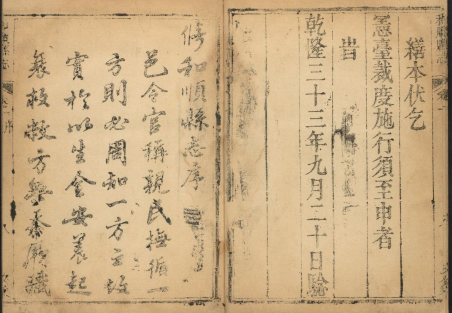 繕本伏乞
憲臺裁度施行須至申者
乾隆三十三年九月二十日
修和順縣志序
邑令官稱親民撫循一
方則必周知一方之故
實於以生全安養起
救方無忝厥職